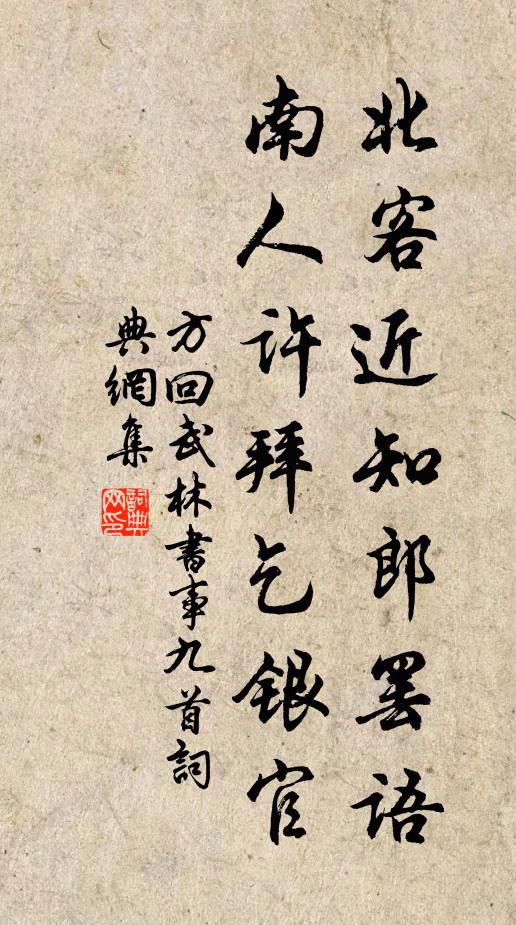 北客近知郎罢語
南人許拜乞銀官
方回武林書事九首詞
典網集
詞典网印